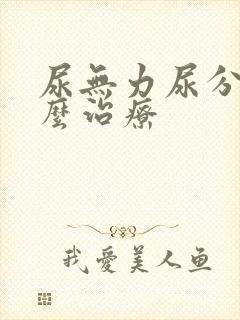 尿無力尿分
麼治療
我愛美人鱼